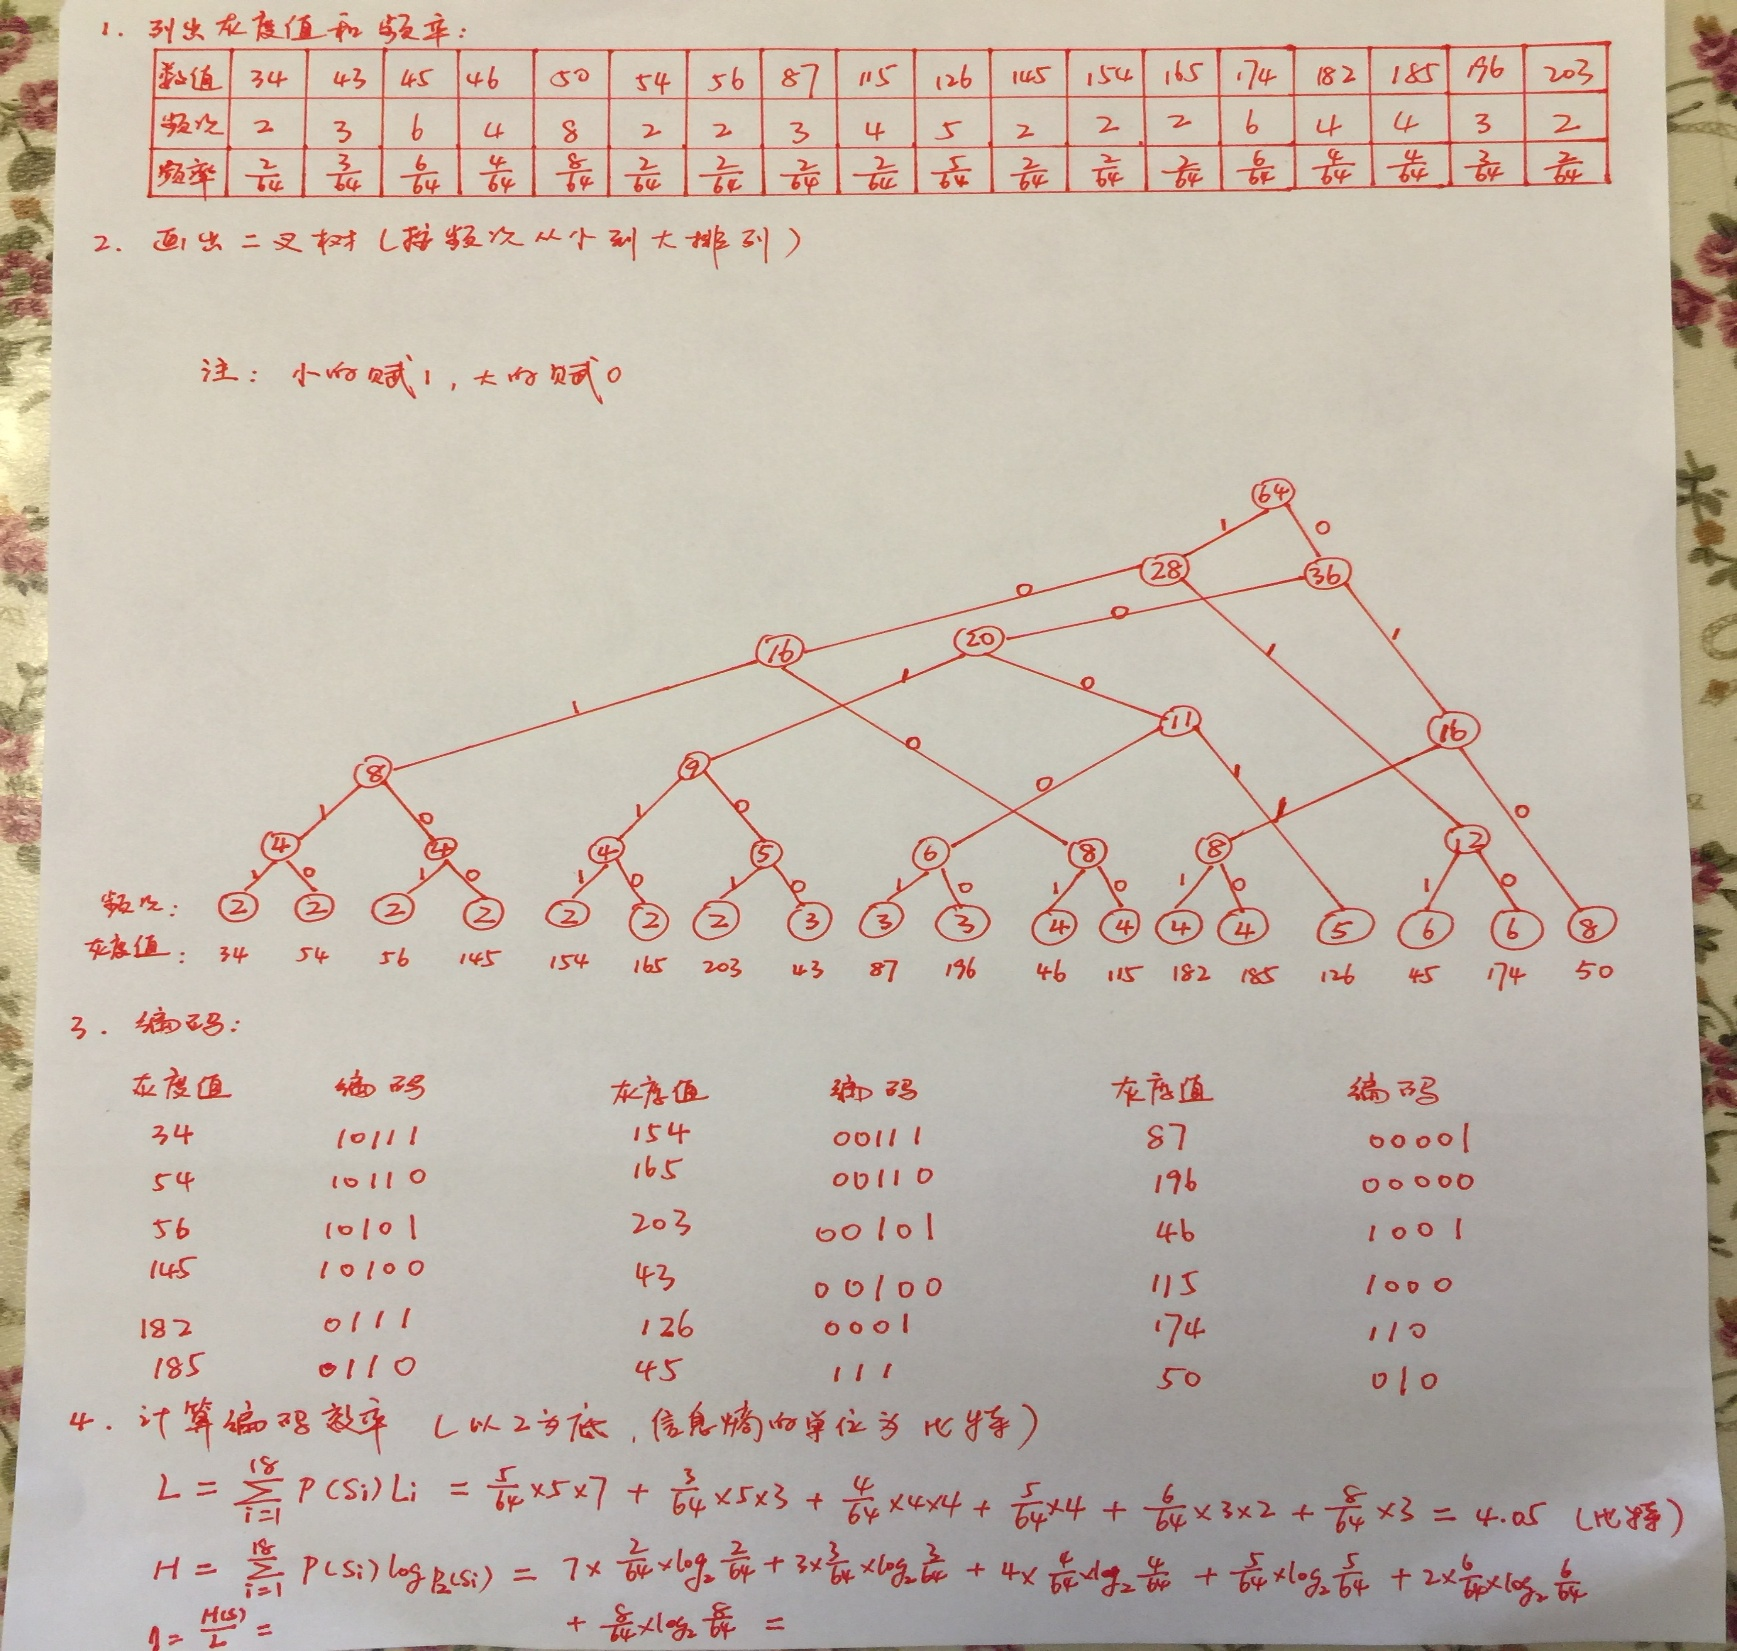 1. 列出灰度值和频率:
数值 34 43 45 46 50 54 56 87 115 126 145 154 165 174 182 185 196 203
频次 2 3 6 4 8 2 2 3 4 5 2 2 2 6 4 4 3 2
频率 2/64 3/64 6/64 4/64 8/64 2/64 2/64 2/64 2/64 5/64 2/64 2/64 2/64 6/64 4/64 4/64 3/64 2/64
2. 画出二叉树(按频次从小到大排列)
注: 小的赋1,大的赋0
64
1 0
28 36
0 0
16 20 1 1
1 1 0 0
11 16
8 9 0 0 1 1 0
1 0 1 0
4 4 4 5 6 8 8 12
1 0 1 0 1 0 1 0 1 0 1 0 1 0 1 0
频次: 2 2 2 2 2 2 2 3 3 3 4 4 4 4 5 6 6 8
灰度值: 34 54 56 145 154 165 203 43 87 196 46 115 182 185 126 45 174 50
3. 编码:
灰度值 编码 灰度值 编码 灰度值 编码
34 10111 154 00111 87 00001
54 10110 165 00110 196 00000
56 10101 203 00101 46 1001
145 10100 43 00100 115 1000
182 0111 126 0001 174 110
185 0110 45 111 50 010
4. 计算编码效率 (以2为底,信息熵的单位为比特)
L = ∑_{i=1}^{18} P(Si)Li = 5/64×5×7 + 3/64×5×3 + 4/64×4×4 + 5/64×4 + 6/64×3×2 + 8/64×3 = 4.05 (比特)
H = ∑_{i=1}^{18} P(Si)log P₂(Si) = 7×2/64×log₂2/64 + 3×3/64×log₂3/64 + 4×4/64×log₂4/64 + 5/64×log₂5/64 + 2×6/64×log₂6/64
η = H(S)/L = + 8/64×log₂8/64 =